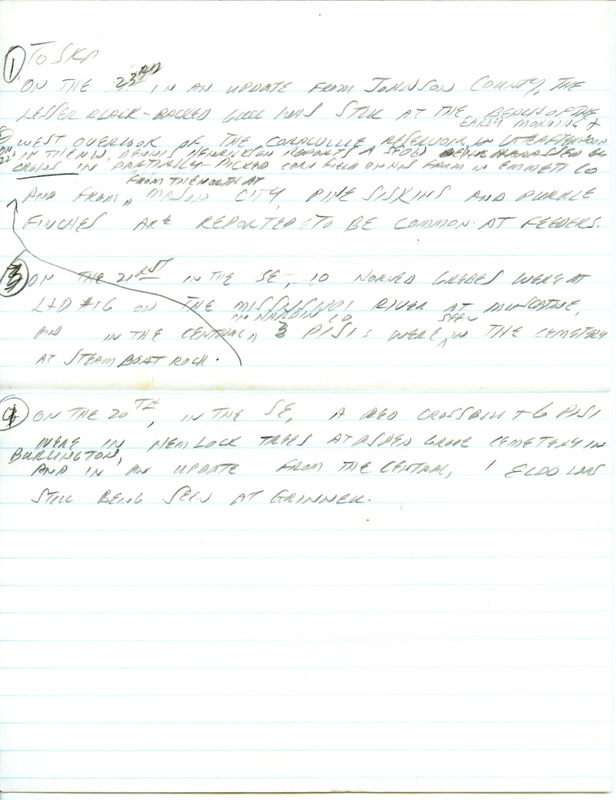 ① TO SKA
ON THE 23RD IN AN UPDATE FROM JOHNSON COUNTY, THE
LESSER BLACK-BACKED GULL WAS STILL AT THE BEACH OF THE
EARLY MORNING &
WEST OVERLOOK OF THE CORALVILLE RESERVOIR IN LATE AFTERNOON
ON 22
IN THE NW, DENNIS HENRICKSON REPORTS A BEING HARASSED BY
CROWS IN PARTIALLY PICKED CORN FIELD ON HIS FARM IN EMMETT CO
FROM THE NORTH AT
AND FROM MASON CITY, PINE SISKINS AND PURPLE
FINCHES ARE REPORTED TO BE COMMON AT FEEDERS.
③ ON THE 21RST IN THE SE, 10 HORNED GREBES WERE AT
L+D #16 ON THE MISSISSIPPI RIVER AT MUSCATINE,
IN HARDIN CO SEEN
AND IN THE CENTRAL, 3 PISIS WERE IN THE CEMETERY
AT STEAMBOAT ROCK.
④ ON THE 20TH, IN THE SE, A RED CROSSBILL + 6 PISI
WERE IN HEMLOCK TREES AT ASPEN GROVE CEMETERY IN
BURLINGTON,
AND IN AN UPDATE FROM THE CENTRAL, 1 ECDO WAS
STILL BEING SEEN AT GRINNELL.